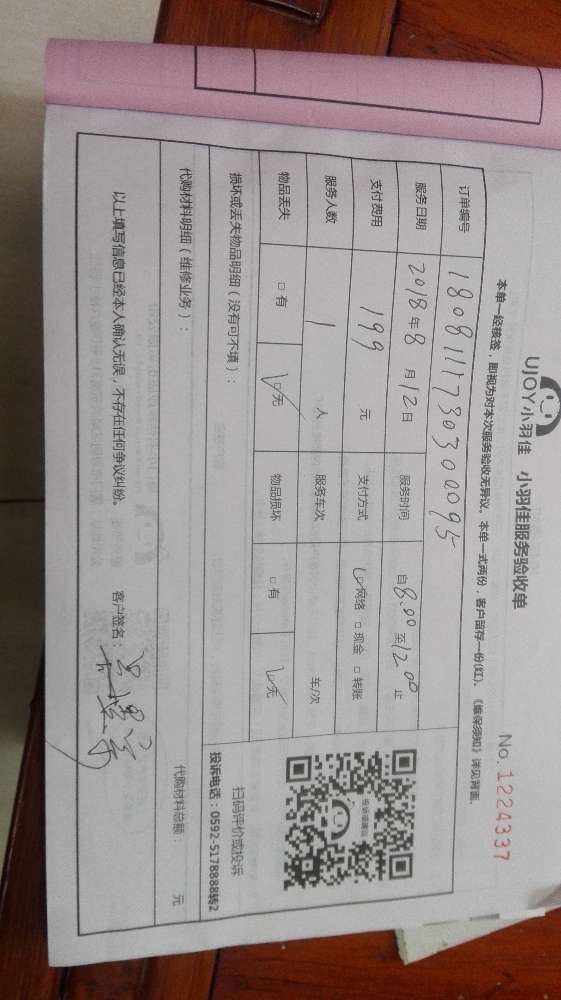 UJOY小羽佳 小羽佳服务验收单
No. 1224337
本单一经核签，即视为对本次服务验收无异议。本单一式两份，客户留存一份(红)。《维保须知》详见背面。
订单编号 180811173030095
服务日期 2018年8月12日 服务时间 自8:00至12:00止
支付费用 199 元 支付方式 ☑网络 □现金 □转账
服务人数 1 人 服务车次 车/次
物品丢失 □有 ☑无 物品损坏 □有 ☑无
扫码评价或投诉
投诉电话：0592-5178888转2
损坏或丢失物品明细（没有可不填）：
代购材料明细（维修业务）：
代购材料总额： 元
以上填写信息已经本人确认无误，不存在任何争议纠纷。 客户签名：